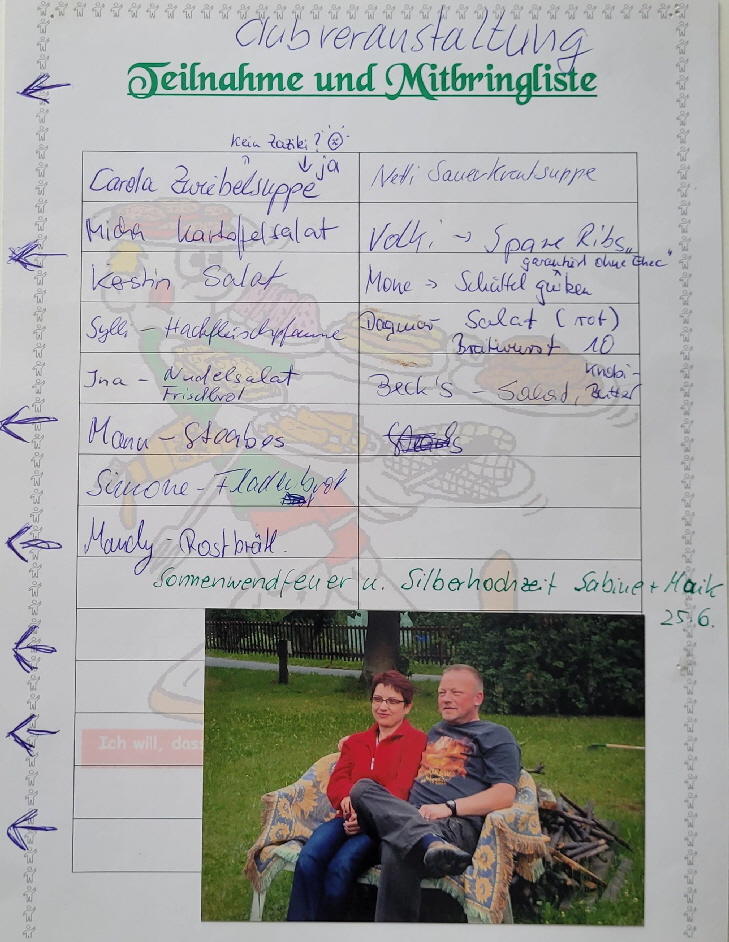 Clubveranstaltung
Teilnahme und Mitbringliste
Kein Zaziki?
ja
Carola Zwiebelsuppe
Netti Sauerkrautsuppe
Micha Kartoffelsalat
Volki → Spare Ribs
"garantiert ohne Ehec"
Kerstin Salat
Mone → Schüttelgurken
Sylli - Hackfleischpfanne
Dagmar Salat (rot)
Bratwurst 10
Ina - Nudelsalat
Frischbrot
Beck's - Salad, Knobi-
Butter
Manu -
Simone - Fladenbrot
Mandy - Rostbrätl.
Sonnenwendfeuer u. Silberhochzeit Sabine + Maik
25.6.
Ich will, dass